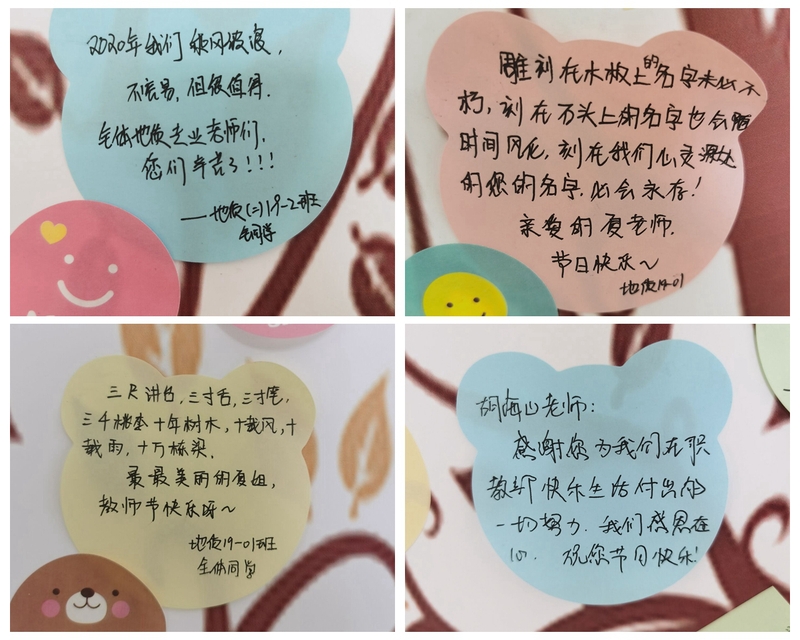 2020年我们乘风破浪，
不容易，但很值得.
全体地质专业老师们.
您们辛苦了!!!
——地质(二)19-2班
全同学
雕刻在木板上的名字未必不
朽，刻在石头上的名字也会随
时间风化，刻在我们心灵深处
的您的名字.必会永存！
亲爱的夏老师.
节日快乐~
地质19-01
三尺讲台，三寸舌，三寸笔，
三千桃李十年树木，十载风，十
载雨，十万栋梁.
最最美丽的夏姐，
教师节快乐呀~
地质19-01班
全体同学
胡海山老师：
感谢您为我们在职
教部快乐生活付出的
一切努力.我们感恩在
心. 祝您节日快乐!